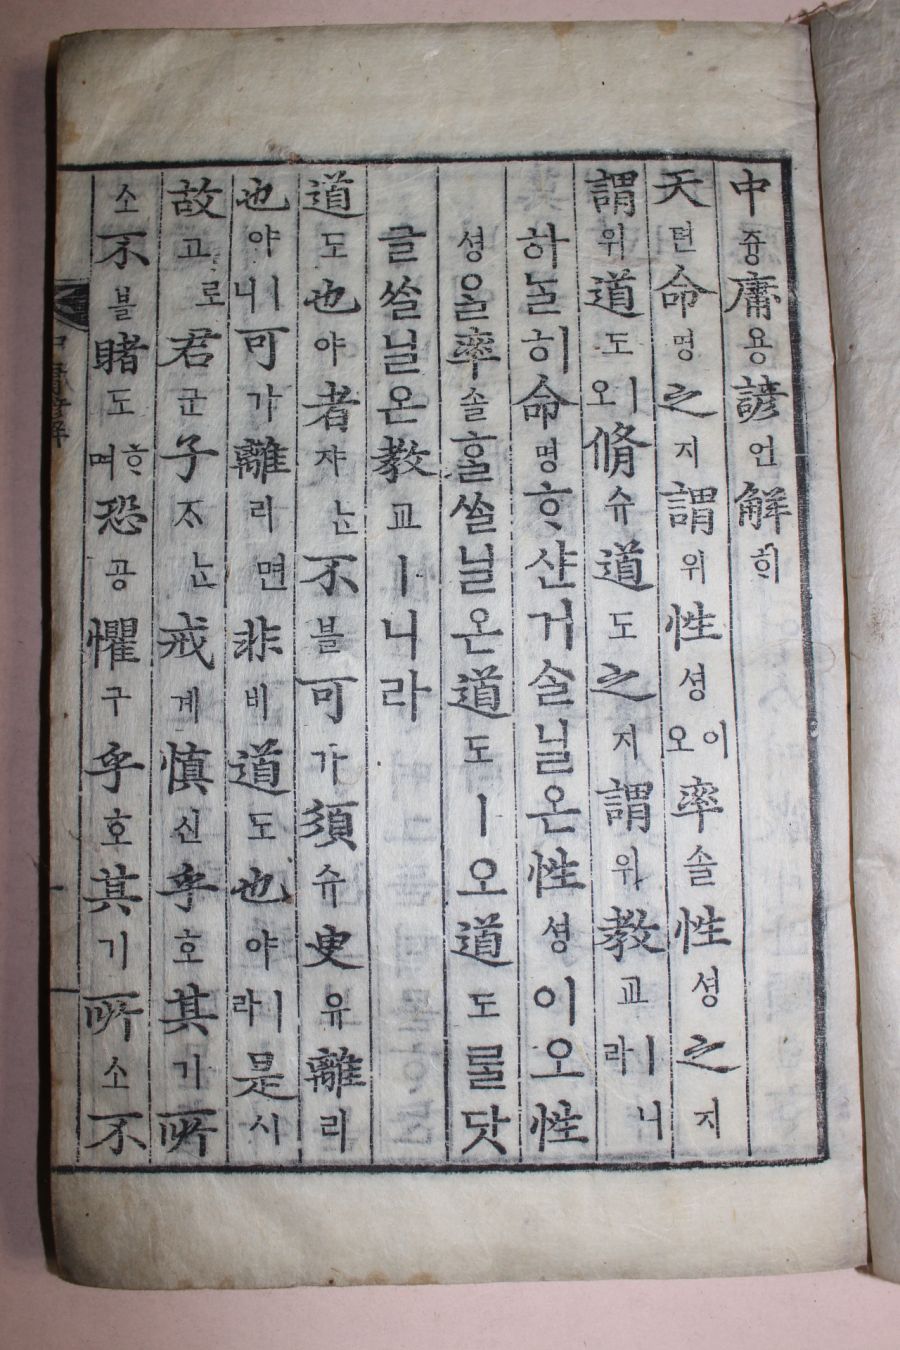 中즁庸용諺언解ᄒᆡ
天텬命명之지謂위性셩이오率솔性셩之지
謂위道도ㅣ오脩슈道도之지謂위敎교ㅣ니라
하ᄂᆞᆯ히命명ᄒᆞ샨거ᄉᆞᆯ닐온性셩이오性
셩ᄋᆞᆯ率솔ᄒᆞᆯᄊᆞᆯ닐온道도ㅣ오道도ᄅᆞᆯ닷
글ᄊᆞᆯ닐온敎교ㅣ니라
道도也야者쟈ᄂᆞᆫ不블可가須슈臾유離리
也야ㅣ니可가離리면非비道도也야ㅣ라是시
故고로君군子ᄌᆞᄂᆞᆫ戒계愼신乎호其기所
소不블睹도ᄒᆞ며恐공懼구乎호其기所소不